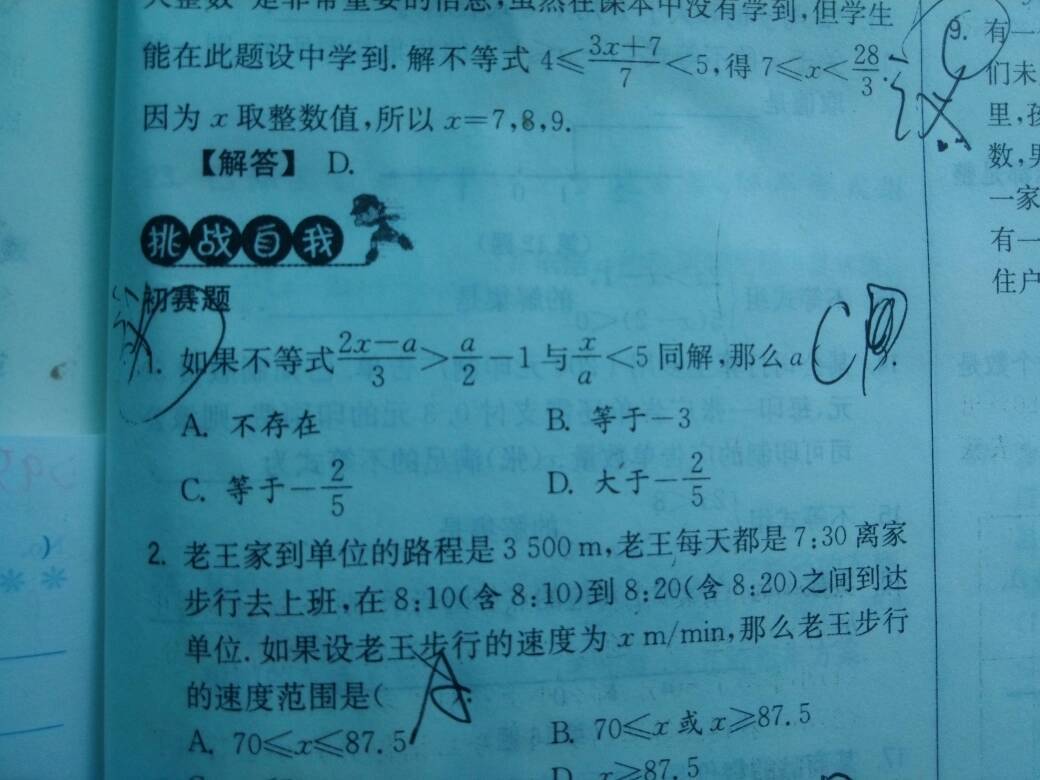 大整数"是非常重要的信息,虽然在课本中没有学到,但学生
能在此题设中学到.解不等式 4≤(3x+7)/7<5,得 7≤x<28/3.
因为 x 取整数值,所以 x=7,8,9.
【解答】 D.
挑战自我
初赛题
1. 如果不等式(2x-a)/3>a/2-1与x/a<5同解,那么a(
A. 不存在
B. 等于-3
C. 等于-2/5
D. 大于-2/5
2. 老王家到单位的路程是 3 500 m,老王每天都是 7:30 离家
步行去上班,在 8:10(含 8:10)到 8:20(含 8:20)之间到达
单位.如果设老王步行的速度为 x m/min,那么老王步行
的速度范围是( A
A. 70≤x≤87.5
B. 70≤x 或 x≥87.5
D. x≥87.5
9. 有一
们未
里,孩
数,男
一家
有一
住户